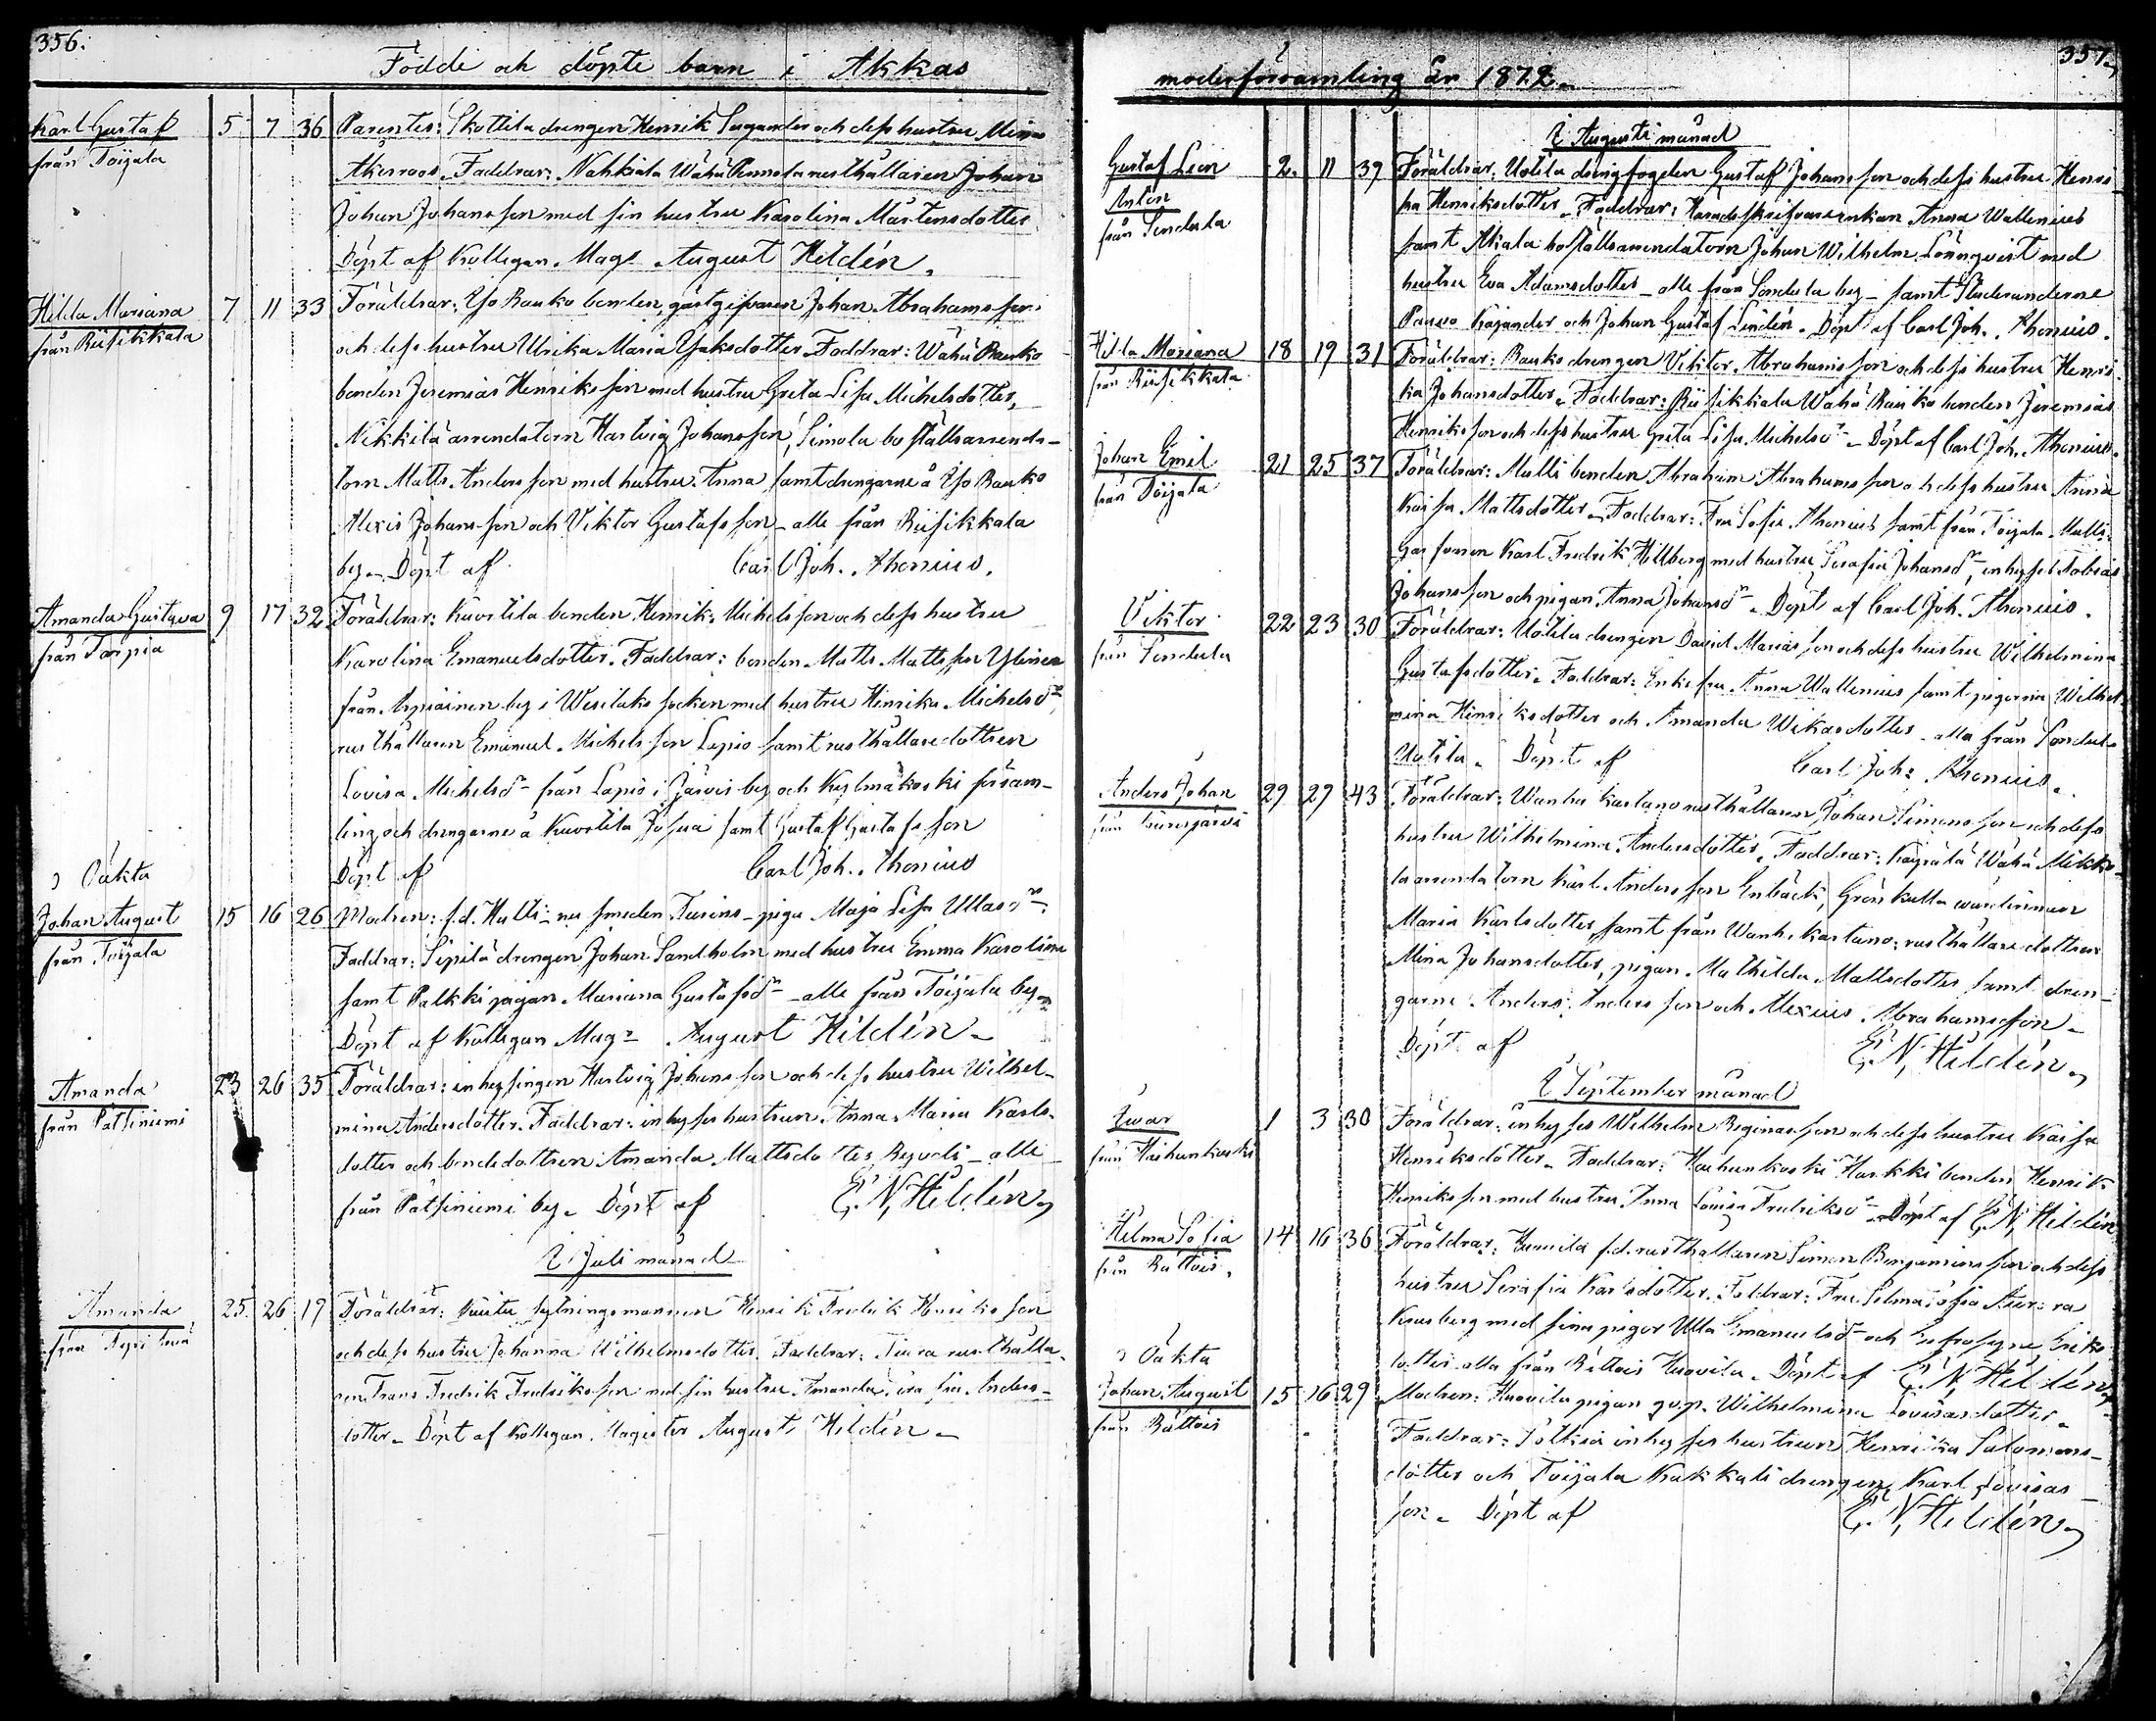 356.
Födde och döpte barn i Akkas
Karl Gustaf 5 7 36 Parentes: Skottila drengen Henrik Sugander och dess hustru Mina
från Toijala
Akerroos. Faddrar: Nahkiala Wähä Pennola rusthållaren Johan
Johan Johansson med sin hustru Karolina Mårtensdotter
Döpt af Kollegan Mag. August Hildén.
Hilda Mariana 7 11 33 Föräldrar: Yso Rauko bonden, gästgifvaren Johan Abrahamsson
från Riisikkala
och dess hustru Ulrika Maria Isaksdotter. Faddrar: Wähä Rauko
bonden Jeremias Henriksson med hustru Greta Lisa Michelsdotter,
Nikkilä arrendatorn Hartvig Johansson, Simola boställsarrenda-
torn Matts Andersson med hustru Anna samt drengarne å Yso Rauko
Alexis Johansson och Viktor Gustafsson - alle från Riisikkala
by. Döpt af Carl Joh. Ahonius.
Amanda Gustava 9 17 32 Föräldrar: Kuortila bonden Henrik Michelsson och dess hustru
från Tarpia
Karolina Emanuelsdotter. Faddrar: bonden Matts Mattsson Ylinen
från by i Wesilaks socken med hustru Henrika Michelsdr,
rusthållaren Emanuel Michelsson Lepio samt rusthållaredottren
Lovisa Michelsdr från Lapio i Jarvis by och Kylmäkoski försam-
ling och drengarne å Kuortila Josua samt Gustaf Gustafsson
Döpt af Carl Joh. Ahonius
Oäkta
Johan August 15 16 26 Modren: f.d. Hutti nu smeden piga Maja Lisa Ullasdr.
från Toijala
Faddrar: Sipilä drengen Johan Sandholm med hustru Emma Karolina
samt Palkki pigan Mariana Gustafsdr - alle från Toijala by.
Döpt af Kollegan Mag. August Hildén.
Amanda 23 26 35 Föräldrar: inhysingen Hartvig Johansson och dess hustru Wilhel-
från Pätsiniemi
mina Andersdotter. Faddrar: inhyses hustrun Anna Maria Karls-
dotter och bondedottren Amanda Mattsdotter - alle
från Pätsiniemi by. Döpt af E. N. Hildén
I Juli månad
Amanda 25. 26 19 Föräldrar: sytningsmannen Henrik Fredrik Henriksson
från
och dess hustru Johanna Wilhelmsdotter. Faddrar: rusthålla-
ren Frans Fredrik Fredriksson med sin hustru Amanda Anders-
dotter. Döpt af Kollegan Magister August Hildén.
357.
moderförsamling år 1872.
I Augusti månad
Gustaf Leon 2. 11 39 Föräldrar: Uotila drängfogden Gustaf Johansson och dess hustru Henri-
Anton
från Sondula
ka Henriksdotter. Faddrar: Anna Wallenius
samt Akala boställsarrendatorn Johan Wilhelm Lönnqvist med
hustru Eva Adamsdotter - alle från Sondula by - samt Studerandena
Paavo Kajander och Johan Gustaf Lindén. Döpt af Carl Joh. Ahonius.
Hilda Mariana 18 19 31 Föräldrar: Rauko drengen Viktor Abrahamsson och dess hustru Henri-
från Riisikkala
ka Johansdotter. Faddrar: Riisikkala Wähä Rauko bonden Jeremias
Henriksson och dess hustru Greta Lisa Michelsdr. Döpt af Carl Joh. Ahonius.
Johan Emil 21 25 37 Föräldrar: Mulli bonden Abraham Abrahamsson och dess hustru Anna
från Toijala
Kaisa Mattsdotter. Faddrar: Fru Sofia Ahonius samt från Toijala Mulli:
Karl Fredrik Hellberg med hustru Serafia Johansdr, inhyses Tobias
Johansson och pigan Anna Johansdr. Döpt af Carl Joh. Ahonius.
Viktor 22 23 30 Föräldrar: Uotila drengen David Mariasson och dess hustru Wilhelmina
från Sondula
Gustafsdotter. Faddrar: Enkefru Anna Wallenius samt pigorna Wilhel-
mina Henriksdotter och Amanda Wikasdotter - alla från Sondula
Uotila. Döpt af Carl Joh: Ahonius.
Anders Johan 29 29 43 Föräldrar: Wanha Kartano rusthållaren Johan Simonsson och dess
från
hustru Wilhelmina Andersdotter. Faddrar: Wähä Mikko-
la arrendatorn Karl Andersson Enbäck, Grönkulla
Maria Karlsdotter samt från Wanh. Kartano: rusthållare dottren
Mina Johansdotter, pigan Mathilda Mattsdotter samt dren-
garne Anders Andersson och Alexius Abrahamsson.
Döpt af E. N. Hildén
I September månad
Iwar 1 3 30 Föräldrar: inhyses Wilhelm Reginasson och dess hustru Kaisa
från Haihunkoski
Henriksdotter. Faddrar: Haihunkoski Harkki bonden Henrik
Henriksson med hustru Anna Lovisa Fredriksdr. Döpt af E. N. Hildén
Hilma Sofia 14 16 36 Föräldrar: f.d. rusthållaren Simon Benjaminsson och dess
från Rättois.
hustru Serafia Karlsdotter. Faddrar: Fru Selma Sofia Aurora
Krusberg med sina pigor Ulla Emanuelsdr och Eufrosyne Eriks-
dotter alla från Rättois Huovila. Döpt af E. N. Hildén
Oäkta
Johan August 15 16 29 Modren: Huovila pigan Wilhelmina Lovisasdotter.
från Rättois
Faddrar: inhyses hustrun Henrika Salomons-
dotter och Toijala Kakkuli drengen Karl Lovisas-
son. Döpt af E. N. Hildén